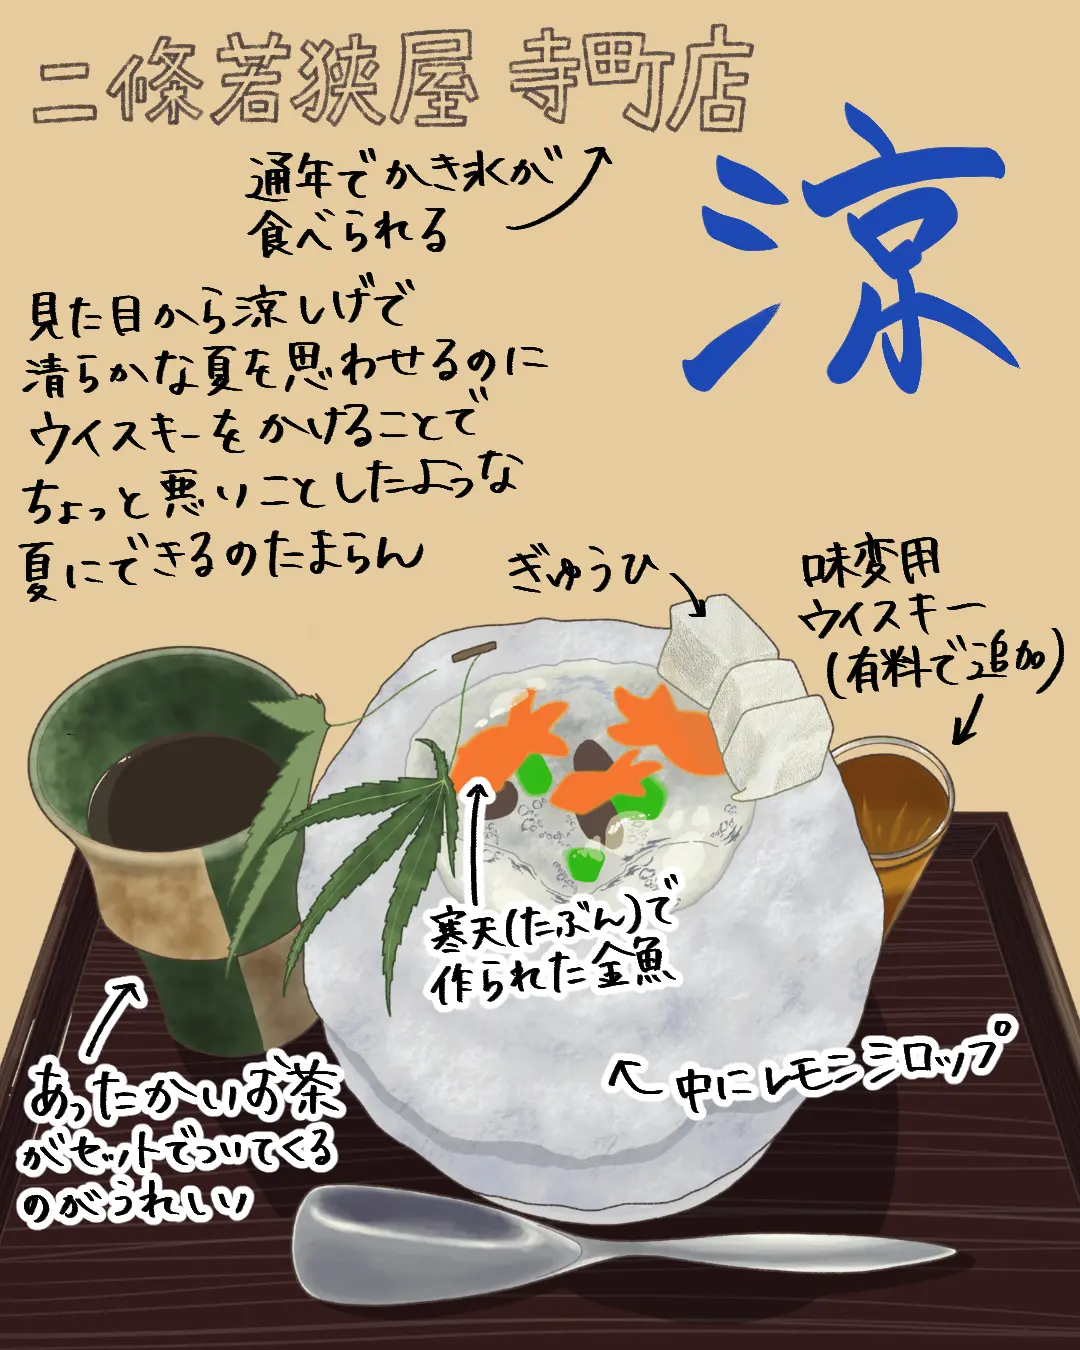 二條若狭屋 寺町店
涼
通年でかき氷が
食べられる
見た目から涼しげで
清らかな夏を思わせるのに
ウイスキーをかけることで
ちょっと悪いことしたような
夏にできるのたまらん
ぎゅうひ
味変用
ウイスキー
(有料で追加)
寒天(たぶん)で
作られた金魚
中にレモンシロップ
あったかいお茶
がセットでついてくる
のがうれしい